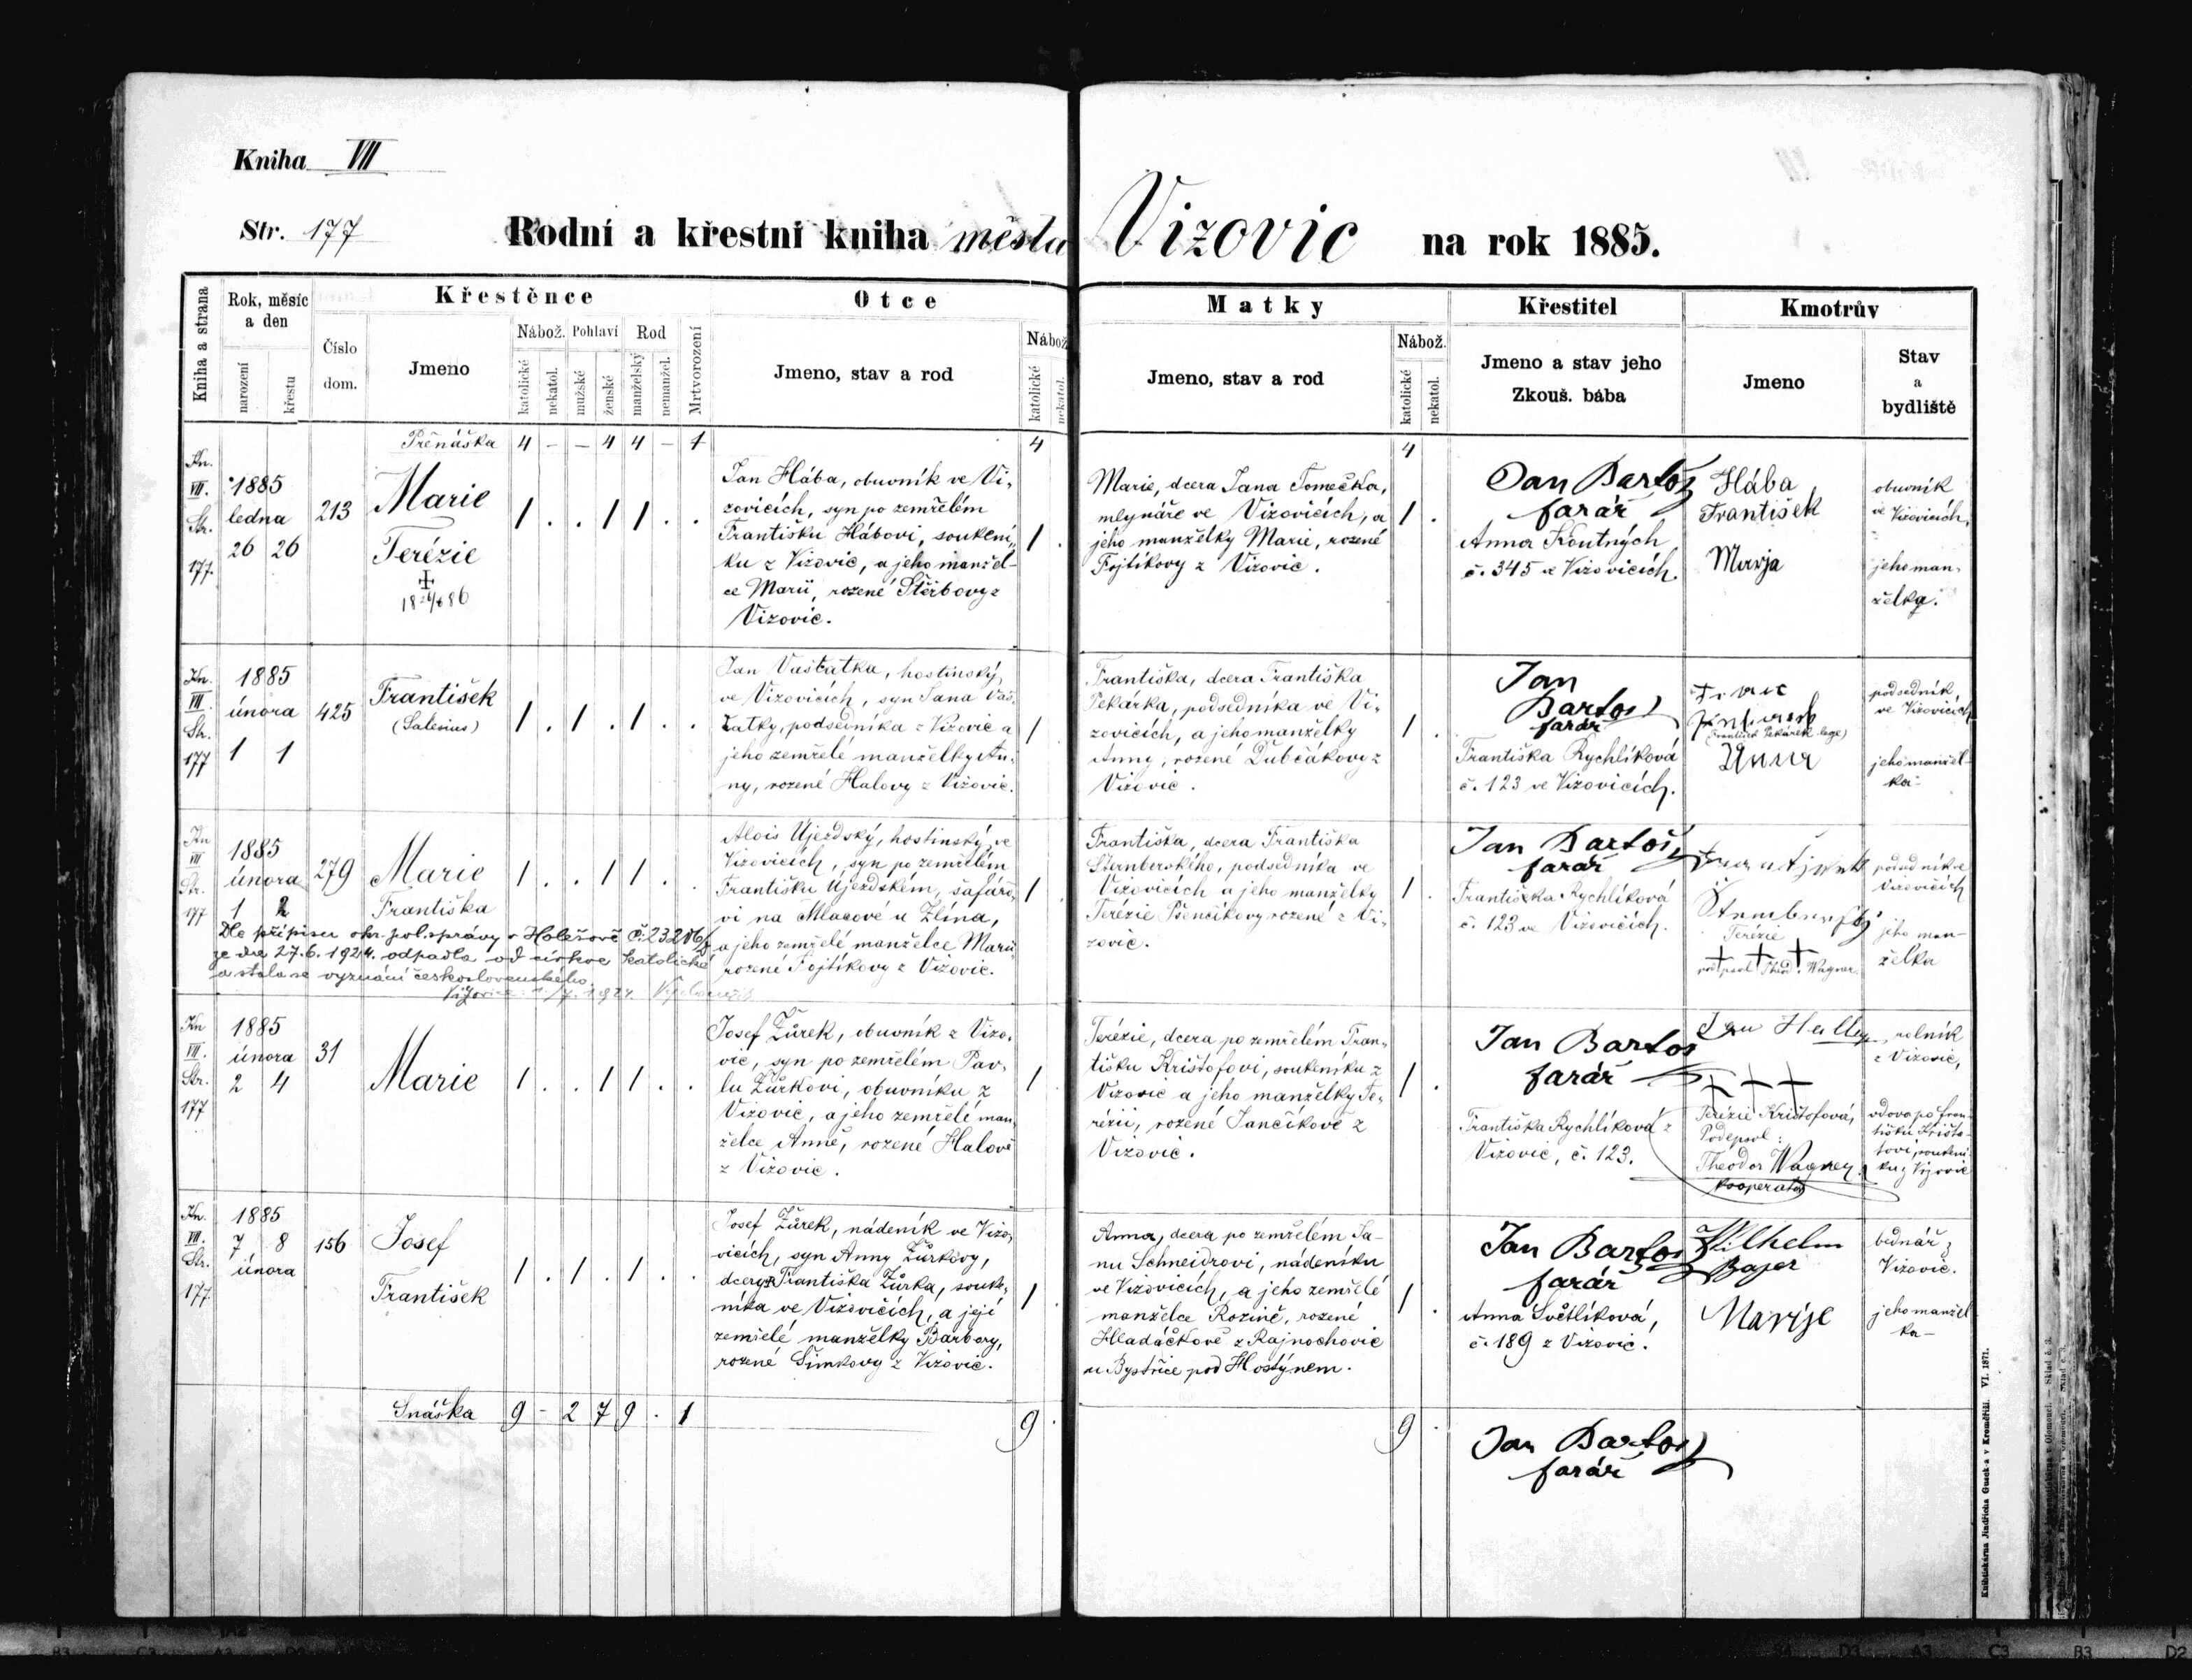 Kniha VII
Str. 177
Rodní a křestní kniha města Vizovic na rok 1885.
Kniha a strana
Rok, měsíc
a den
narození
křestu
Číslo
dom.
Křestěnce
Jmeno
Nábož.
katolické
nekatol.
Pohlaví
mužské
ženské
Rod
manželský
nemanžel.
Mrtvorození
Otce
Jmeno, stav a rod
Nábož
katolické
nekatol.
Matky
Jmeno, stav a rod
Nábož.
katolické
nekatol.
Křestitel
Jmeno a stav jeho
Zkouš. bába
Kmotrův
Jmeno
Stav
a
bydliště
Přenáška 4 - - 4 4 - 1 4 4
Kn.
VII.
Str.
177.
1885
ledna
26 26
213
Marie
Terézie
1 . . 1 1 . .
Jan Hába, obuvník ve Vi-
zovicích, syn po zemřelém
Františku Hábovi, soukení-
ku z Vizovic, a jeho manžel-
ce Marii, rozené Štěrbovy z
Vizovic.
1 .
Marie, dcera Jana Tomečka,
mlynáře ve Vizovicích, a
jeho manželky Marie, rozené
Fojtíkovy z Vizovic.
1 .
Jan Bartoš
farář
Anna Koutných
č. 345 ve Vizovicích.
Hába
František
Marja
obuvník
ve Vizovicích,
jeho man-
želka.
Kn.
VII.
Str.
177
1885
února
1 1
425
František
(Salesius)
1 . 1 . 1 . .
Jan Vaštatka, hostinský,
ve Vizovicích, syn Jana Vaš-
tatky, podsedníka z Vizovic a
jeho zemřelé manželky An-
ny, rozené Halovy z Vizovic.
1
Františka, dcera Františka
Pekárka, podsedníka ve Vi-
zovicích, a jeho manželky
Anny, rozené Dubčákovy z
Vizovic.
1 .
Jan
Bartoš
farář
Františka Rychlíková
č. 123 ve Vizovicích.
(František Pekárek lege)
Anna
podsedník,
ve Vizovicích
jeho manžel-
ka-
Kn
VII
Str.
177
1885
února
1 2
279
Marie
Františka
1 . . 1 1 . .
Dle přípisu okr. pol. správy v Holešově
ze dne 27.6.1924. odpadla od církve katolické
a stala se vyznání československého.
Alois Újezdský, hostinský ve
Vizovicích, syn po zemřelém
Františku Újezdském, šafářo-
vi na Mlacové u Zlína,
a jeho zemřelé manželce Marii,
rozené Fojtíkovy z Vizovic.
1
Františka, dcera Františka
Šternberského, podsedníka ve
Vizovicích a jeho manželky
Terézie Pšenčíkovy rozené z Vi-
zovic.
1 .
Jan Bartoš,
farář
Františka Rychlíková
č. 123 ve Vizovicích.
Terézie
+ + +
podsedník ve
Vizovicích
jeho man-
želka
Kn
VII.
Str.
177
1885
února
2 4
31
Marie
1 . . 1 1 . .
Josef Žůrek, obuvník z Vizo-
vic, syn po zemřelém Pav-
lu Žůrkovi, obuvníku z
Vizovic, a jeho zemřelé man-
želce Anně, rozené Halově
z Vizovic.
1
Terézie, dcera po zemřelém Fran-
tišku Krištofovi, soukeníku z
Vizovic a jeho manželky Te-
rézii, rozené Jančíkově z
Vizovic.
1 .
Jan Bartoš
farář
Františka Rychlíková z
Vizovic, č. 123.
+ + +
Terézie Krištofová,
Podepsal:
Theodor Wagner
kooperator
rolník
z Vizovic,
vdova po Fran-
tišku Krišto-
fovi, soukení-
ku z Vizovic
Kn.
VII.
Str.
177
1885
7 8
února
156
Josef
František
1 . 1 . 1 . .
Josef Žůrek, nádeník ve Vizo-
vicích, syn Anny Žůrkovy,
dcery Františka Žůrka, souke-
níka ve Vizovicích, a její
zemřelé manželky Barbory,
rozené Šimkovy z Vizovic.
1 .
Anna, dcera po zemřelém Ja-
nu Schneidrovi, nádeníku
ve Vizovicích, a jeho zemřelé
manželce Rozině, rozené
Hladáčkově z Rajnochovic
u Bystřice pod Hostýnem.
1 .
Jan Bartoš
farář
Anna Světlíková,
č. 189 z Vizovic.
Wilhelm
Bajer
Marije
bednář z
Vizovic.
jeho manžel-
ka-
Snáška 9 - 2 7 9 . 1 9 . 9 .
Jan Bartoš
farář
Knihtiskárna Jindřicha Guseka v Kroměříži. VI. 1871.